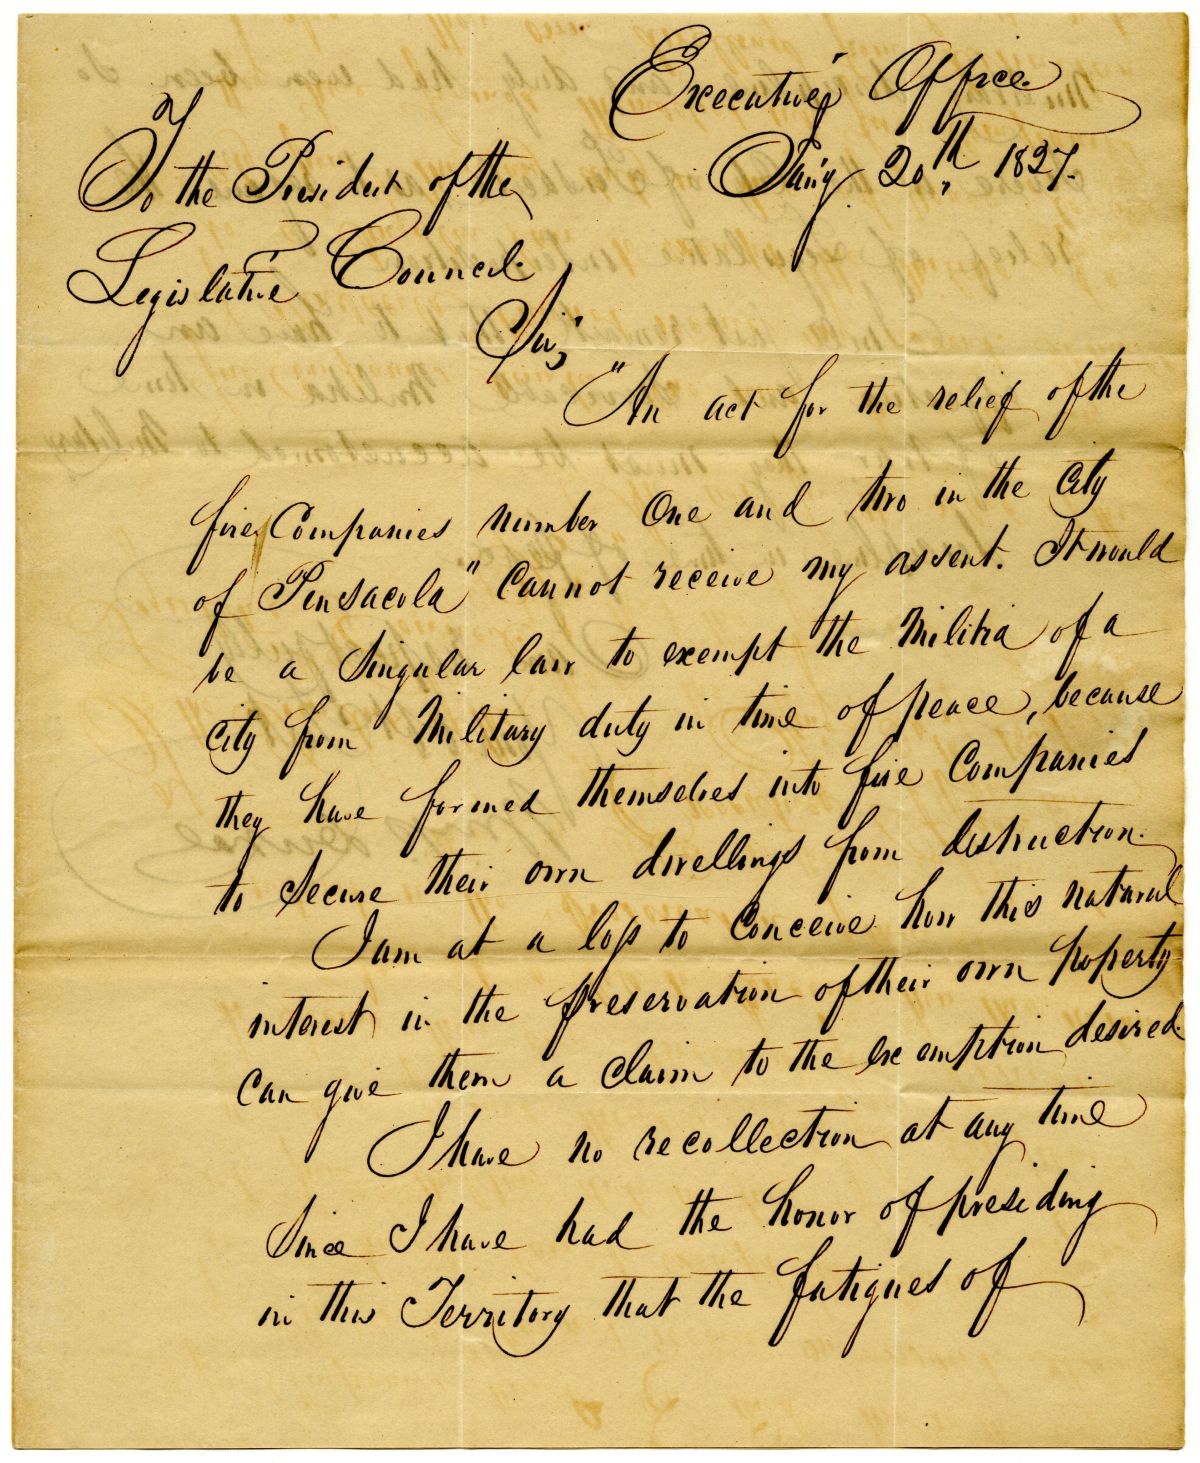 Executive Office
Jan'y 20th, 1827.
To the President of the
Legislative Council.
Sir,
"An act for the relief of the
fire Companies number One and two in the City
of Pensacola" Cannot receive my assent. It would
be a Singular law to exempt the Militia of a
City from Military duty in time of peace, because
they have formed themselves into fire Companies
to Secure their own dwellings from distruction.
I am at a loss to Conceive how this natural
interest in the preservation of their own property
Can give them a Claim to the exemption desired.
I have no recollection at any time
Since I have had the honor of presiding
in this Territory that the fatigues of